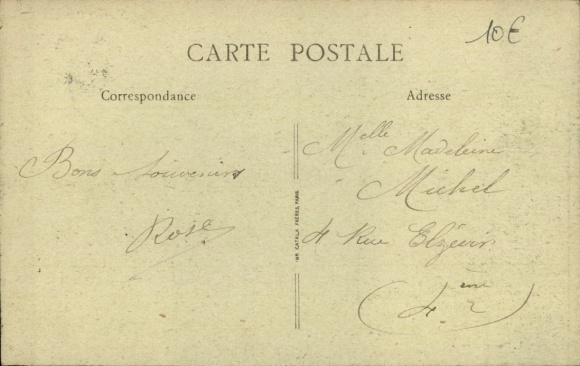 10€
CARTE POSTALE
Correspondance
Adresse
Bons Souvenirs
Rose
Melle Madeleine
Michel
4 Rue Elzévir
(4eme)
IMP. CATALA FRÈRES, PARIS